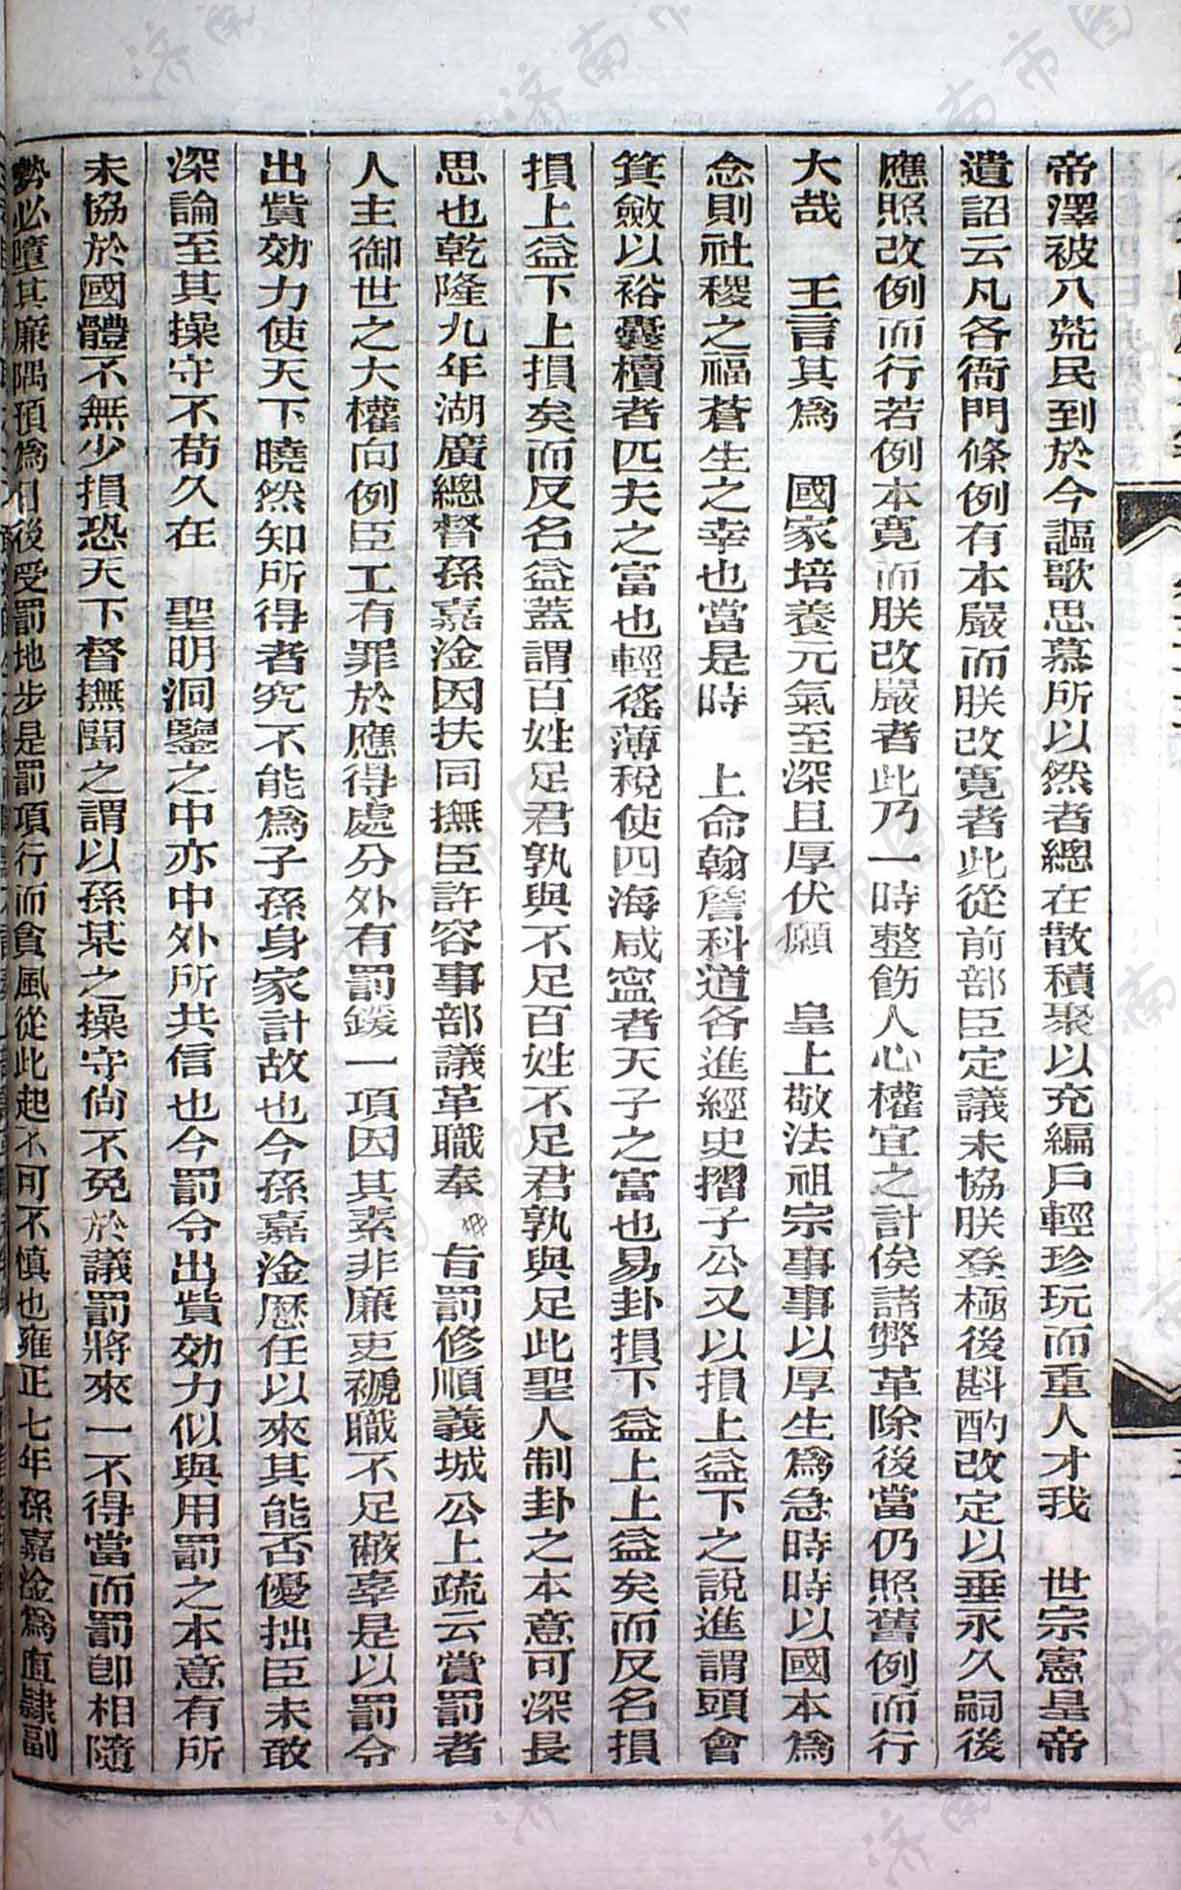 帝澤被八荒民到於今謳歌思慕所以然者總在散積聚以充編戶輕珍玩而重人才我　世宗憲皇帝
遺詔云凡各衙門條例有本嚴而朕改寬者此從前部臣定議未協朕登極後斟酌改定以垂永久嗣後
應照改例而行若例本寬而朕改嚴者此乃一時整飭人心權宜之計俟諸弊革除後當仍照舊例而行
大哉　王言其為　國家培養元氣至深且厚伏願　皇上敬法祖宗事事以厚生為急時時以國本為
念則社稷之福蒼生之幸也當是時　上命翰詹科道各進經史摺子公又以損上益下之說進謂頭會
箕斂以裕囊櫝者匹夫之富也輕徭薄稅使四海咸寍者天子之富也易卦損下益上上益矣而反名損
損上益下上損矣而反名益蓋謂百姓足君孰與不足百姓不足君孰與足此聖人制卦之本意可深長
思也乾隆九年湖廣總督孫嘉淦因扶同撫臣許容事部議革職奉　旨罰修順義城公上疏云賞罰者
人主御世之大權向例臣工有罪於應得處分外有罰鍰一項因其素非廉吏褫職不足蔽辜是以罰令
出貲効力使天下曉然知所得者究不能為子孫身家計故也今孫嘉淦歷任以來其能否優拙臣未敢
深論至其操守不苟久在　聖明洞鑒之中亦中外所共信也今罰令出貲効力似與用罰之本意有所
未協於國體不無少損恐天下督撫聞之謂以孫某之操守尙不免於議罰將來一不得當而罰卽相隨
勢必墮其廉隅預為日後受罰地步是罰項行而貪風從此起不可不慎也雍正七年孫嘉淦為直隸副